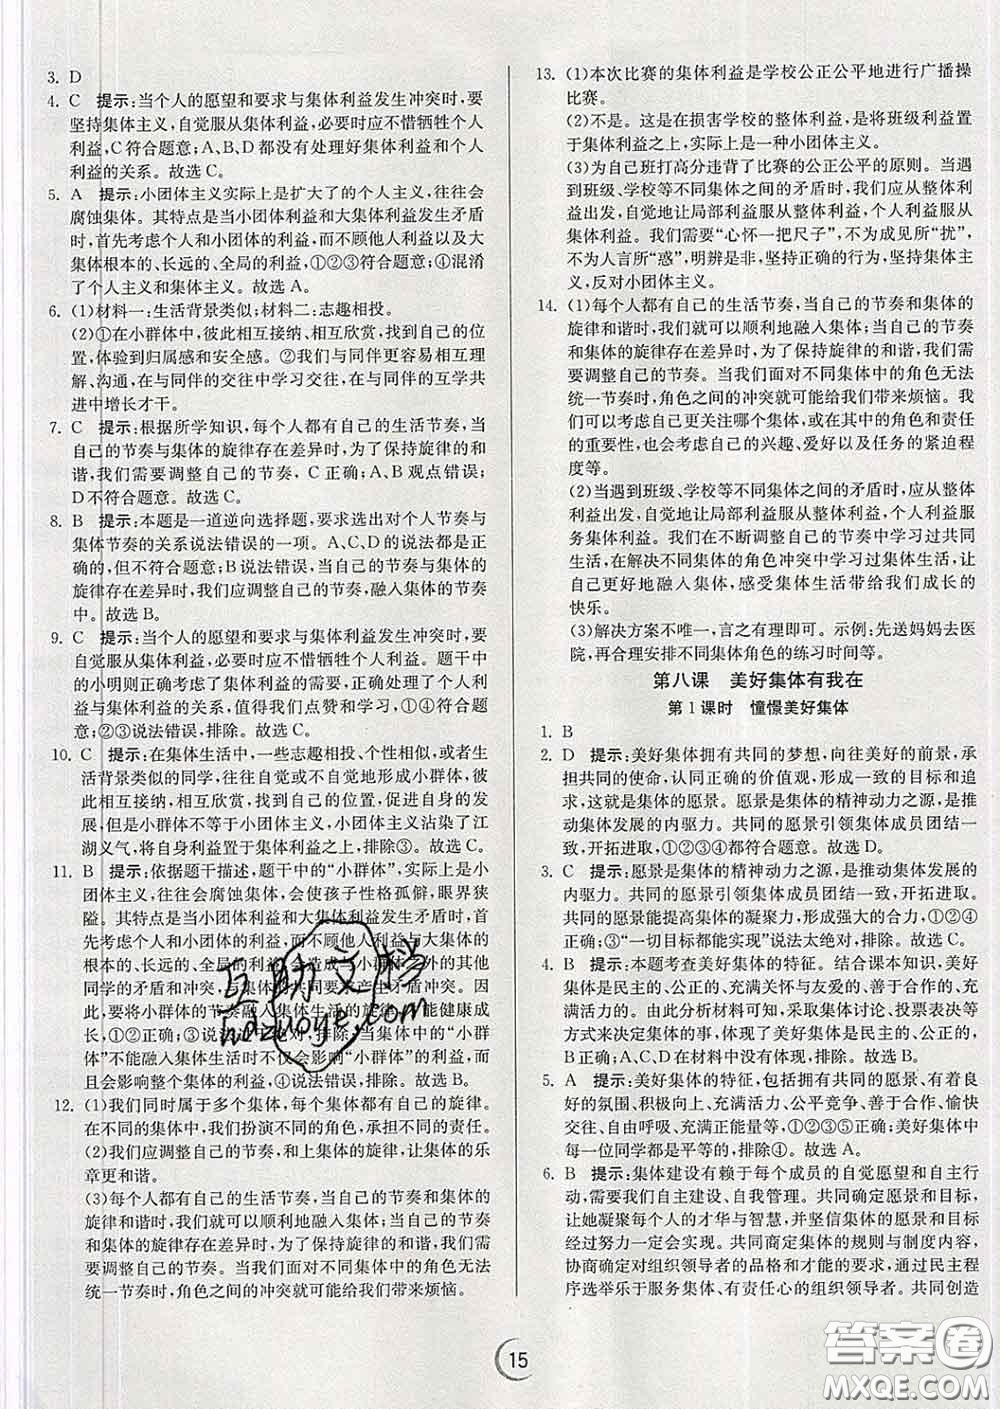 3. D
4. C 提示:当个人的愿望和要求与集体利益发生冲突时,要
坚持集体主义,自觉服从集体利益,必要时应不惜牺牲个人
利益,C符合题意;A、B、D都没有处理好集体利益与个人
利益的关系。故选C。
5. A 提示:小团体主义实际上是扩大了的个人主义,往往会
腐蚀集体。其特点是当小团体利益和大集体利益发生矛盾
时,首先考虑个人和小团体的利益,而不顾他人利益以及大
集体根本的、长远的、全局的利益,①②③符合题意;④混淆
了个人主义和集体主义。故选A。
6. (1)材料一:生活背景类似;材料二:志趣相投。
(2)①在小群体中,彼此相互接纳、相互欣赏,找到自己的位
置,体验到归属感和安全感。②我们与同伴更容易相互理
解、沟通,在与同伴的交往中学习交往,在与同伴的互学共
进中增长才干。
7. C 提示:根据所学知识,每个人都有自己的生活节奏,当
自己的节奏与集体的旋律存在差异时,为了保持旋律的和
谐,我们需要调整自己的节奏,C正确;A、B观点错误;
D不符合题意。故选C。
8. B 提示:本题是一道逆向选择题,要求选出对个人节奏与
集体节奏的关系说法错误的一项。A、C、D的说法都是正
确的,但不符合题意;B说法错误,当自己的节奏与集体的
旋律存在差异时,我们应调整自己的节奏,融入集体的节奏
中。故选B。
9. C 提示:当个人的愿望和要求与集体利益发生冲突时,要
自觉服从集体利益,必要时应不惜牺牲个人利益。题干中
的小明则正确处理了集体利益与个人利益的关系,①④符合题意;②③说法错误,排除。故选C。
10. C 提示:在集体生活中,一些志趣相投、个性相似,或者生
活背景类似的同学,往往自觉或不自觉地形成小群体,彼
此相互接纳,相互欣赏,找到自己的位置,促进自身的发
展,但是小群体不等于小团体主义,小团体主义沾染了江
湖义气,将自身利益置于集体利益之上,排除③。故选C。
11. B 提示:依据题干描述,题干中的“小群体”,实际上是小
团体主义,往往会腐蚀集体,会使孩子性格孤僻,眼界狭
隘。其特点是当小团体利益和大集体利益发生矛盾时,首
先考虑个人和小团体的利益,而不顾他人利益与大集体的
根本的、长远的、全局的利益,会造成与小群体之外的其他
同学的矛盾和冲突,与集体的共同要求产生矛盾冲突。因
此,要将小群体的节奏融入集体生活的旋律,才能健康成
长,①②正确;③说法错误,应排除。当集体中的“小群
体”不能融入集体生活时不仅会影响“小群体”的利益,而
且会影响整个集体的利益,④说法错误,排除。故选B。
12. (1)我们同时属于多个集体,每个集体都有自己的旋律。
在不同的集体中,我们扮演不同的角色,承担不同的责任。
(2)我们应调整自己的节奏,和上集体的旋律,让集体的乐
章更和谐。
(3)每个人都有自己的生活节奏,当自己的节奏和集体的
旋律和谐时,我们就可以顺利地融入集体;当自己的节奏
和集体的旋律存在差异时,为了保持旋律的和谐,我们需要
调整自己的节奏。当我们面对不同集体中的角色无法
统一节奏时,角色之间的冲突就可能给我们带来烦恼。
13. (1)本次比赛的集体利益是学校公正公平地进行广播操
比赛。
(2)不是。这是在损害学校的整体利益,是将班级利益置
于集体利益之上,实际上是一种小团体主义。
(3)为自己班打高分违背了比赛的公正公平的原则。当遇
到班级、学校等不同集体之间的矛盾时,我们应从整体利
益出发,自觉地让局部利益服从整体利益,个人利益服从
集体利益。我们需要“心怀一把尺子”,不为成见所“扰”,
不为人言所“惑”,明辨是非,坚持正确的行为,坚持集体主
义,反对小团体主义。
14. (1)每个人都有自己的生活节奏,当自己的节奏和集体的
旋律和谐时,我们就可以顺利地融入集体;当自己的节奏
和集体的旋律存在差异时,为了保持旋律的和谐,我们需
要调整自己的节奏。当我们面对不同集体中的角色无法
统一节奏时,角色之间的冲突就可能给我们带来烦恼。我
们可以考虑自己更关注哪个集体,或在其中的角色和责任
的重要性,也会考虑自己的兴趣、爱好以及任务的紧迫程
度等。
(2)当遇到班级、学校等不同集体之间的矛盾时,应从整体
利益出发,自觉地让局部利益服从整体利益,个人利益服
务集体利益。我们在不断调整个人节奏中学习过共同
生活,在解决不同集体的角色冲突中学习过集体生活,让
自己更好地融入集体,感受集体生活带给我们成长的
快乐。
(3)解决方案不唯一,言之有理即可。示例:先送妈妈去医
院,再合理安排不同集体角色的练习时间等。
第八课 美好集体有我在
第1课时 憧憬美好集体
1. B
2. D 提示:美好集体拥有共同的梦想,向往美好的前景,承
担共同的使命,认同正确的价值观,形成一致的目标和追
求,这就是集体的愿景。愿景是集体的精神动力之源,是推
动集体发展的内驱力。共同的愿景引领集体成员团结一
致、开拓进取,①②③④都符合题意。故选D。
3. C 提示:愿景是集体的精神动力之源,是推动集体发展的
内驱力。共同的愿景引领集体成员团结一致,开拓进取。
共同的愿景能提高集体的凝聚力,形成集体的合力,①②④
正确;③“一切目标都能实现”说法太绝对,排除。故选C。
4. B 提示:本题考查美好集体的特征。结合课本知识,美好
集体是民主的、公正的、充满关怀与友爱的、善于合作的、
充满活力的。由此分析材料可知,采取集体讨论、投票表决等
方式来决定集体的事,体现了美好集体是民主的、公正的,
B正确;A、C、D在材料中没有体现,排除。故选B。
5. A 提示:美好集体的特征,包括拥有共同的愿景、有良
好的氛围、积极向上、充满活力、公平竞争、善于合作、愉快
交往、自由呼吸、充满正能量等,①②③⑤正确;美好集体中
每一位同学都是平等的,排除④。故选A。
6. B 提示:集体建设有赖于每个成员的自觉愿望和自主行
动,需要我们自主建设、自我管理。共同确定愿景和目标,
让她凝聚每个人的才华与智慧,并坚信集体的愿景和目标
经过努力一定会实现。共同商定集体的规则与制度内容,
协商确定对组织领导者的品格和才能的要求,通过民主程
序选举乐于服务集体、有责任心的组织领导者。共同创造
互助文档
hdzuoye.com
15
答案圈
MXQE.COM